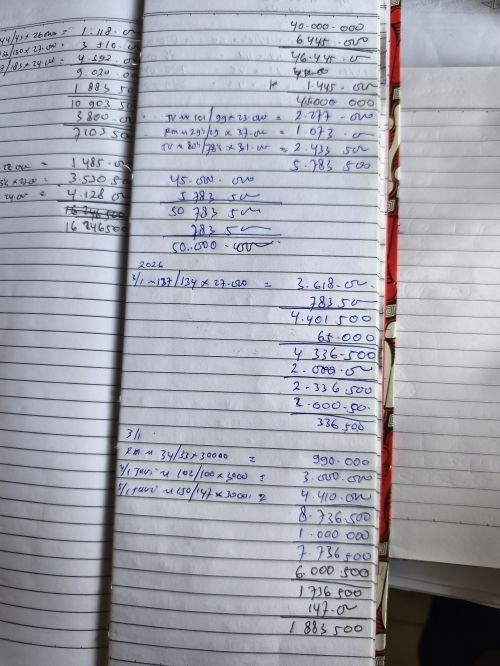 44/43 x 26.000 = 1.118.000
133/130 x 27.000 = 3 510.000
/183 x 24.000 = 4.392.000
9.020.000
1 883 500
10 903 500
3 800.000
7103 500
= 1 485.000
= 3.530 500
24.000 = 4.128.000
16 246 500
16 246500
40.000.000
6.445.000
46.445.000
1.445.000
45000 000
101/99 x 23.000 = 2.277.000
29/29 x 37.000 = 1.073.000
x 31.000 = 2.433 500
5.783 500
45.000.000
5 783 500
50 783 500
783 500
50.000.000
2026
2/1 ~ 137/134 x 27.000 = 3.618.000
783 500
4.401 500
65.000
4 336.500
2.000.000
2.336.500
2.000.500
336 500
3/1
34/33 x 30000 = 990.000
4/1 ~ 102/100 x 3000 = 3.000.000
5/1 ~ 150/147 x 30001 = 4.410.000
8.736.500
1.000 000
7.736.500
6.000 500
1 736 500
147.000
1 883 500